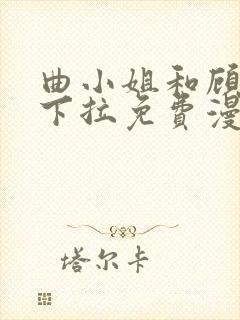 曲小姐和顾
下拉免費漫
塔尔卡